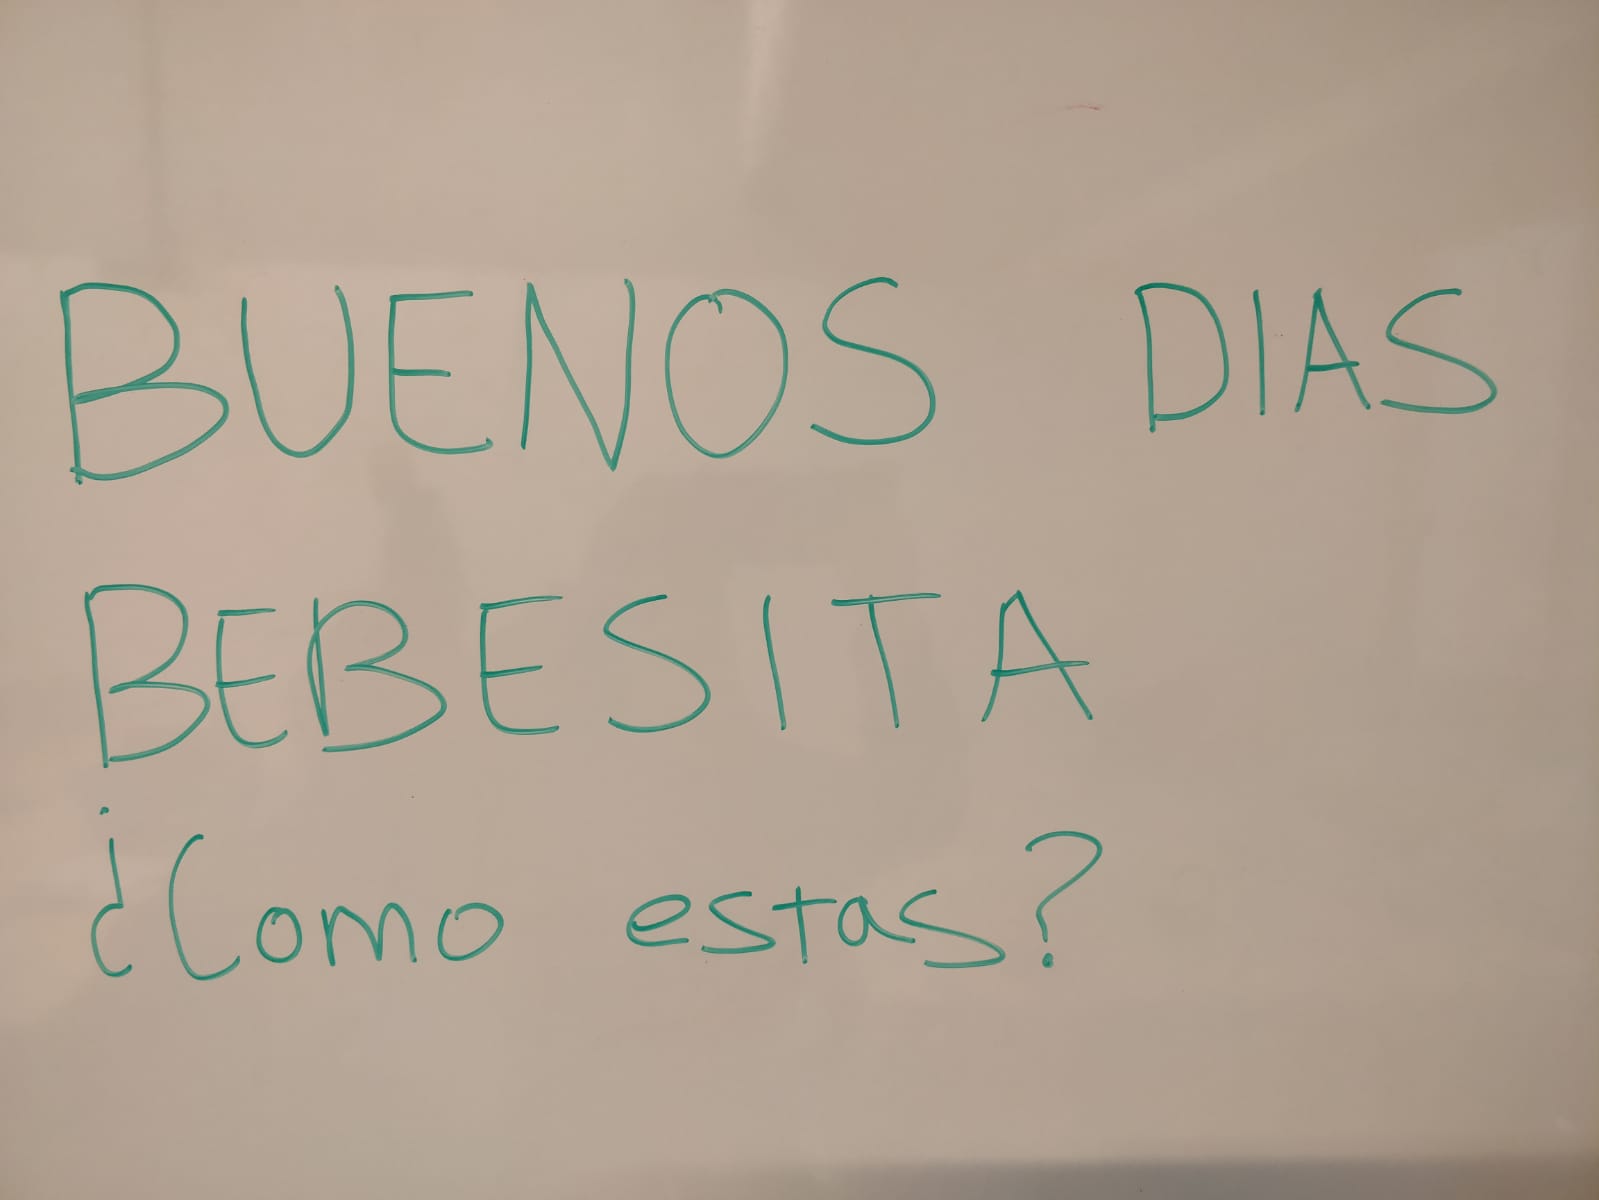 BUENOS DIAS
BEBESITA
¿Como estas?